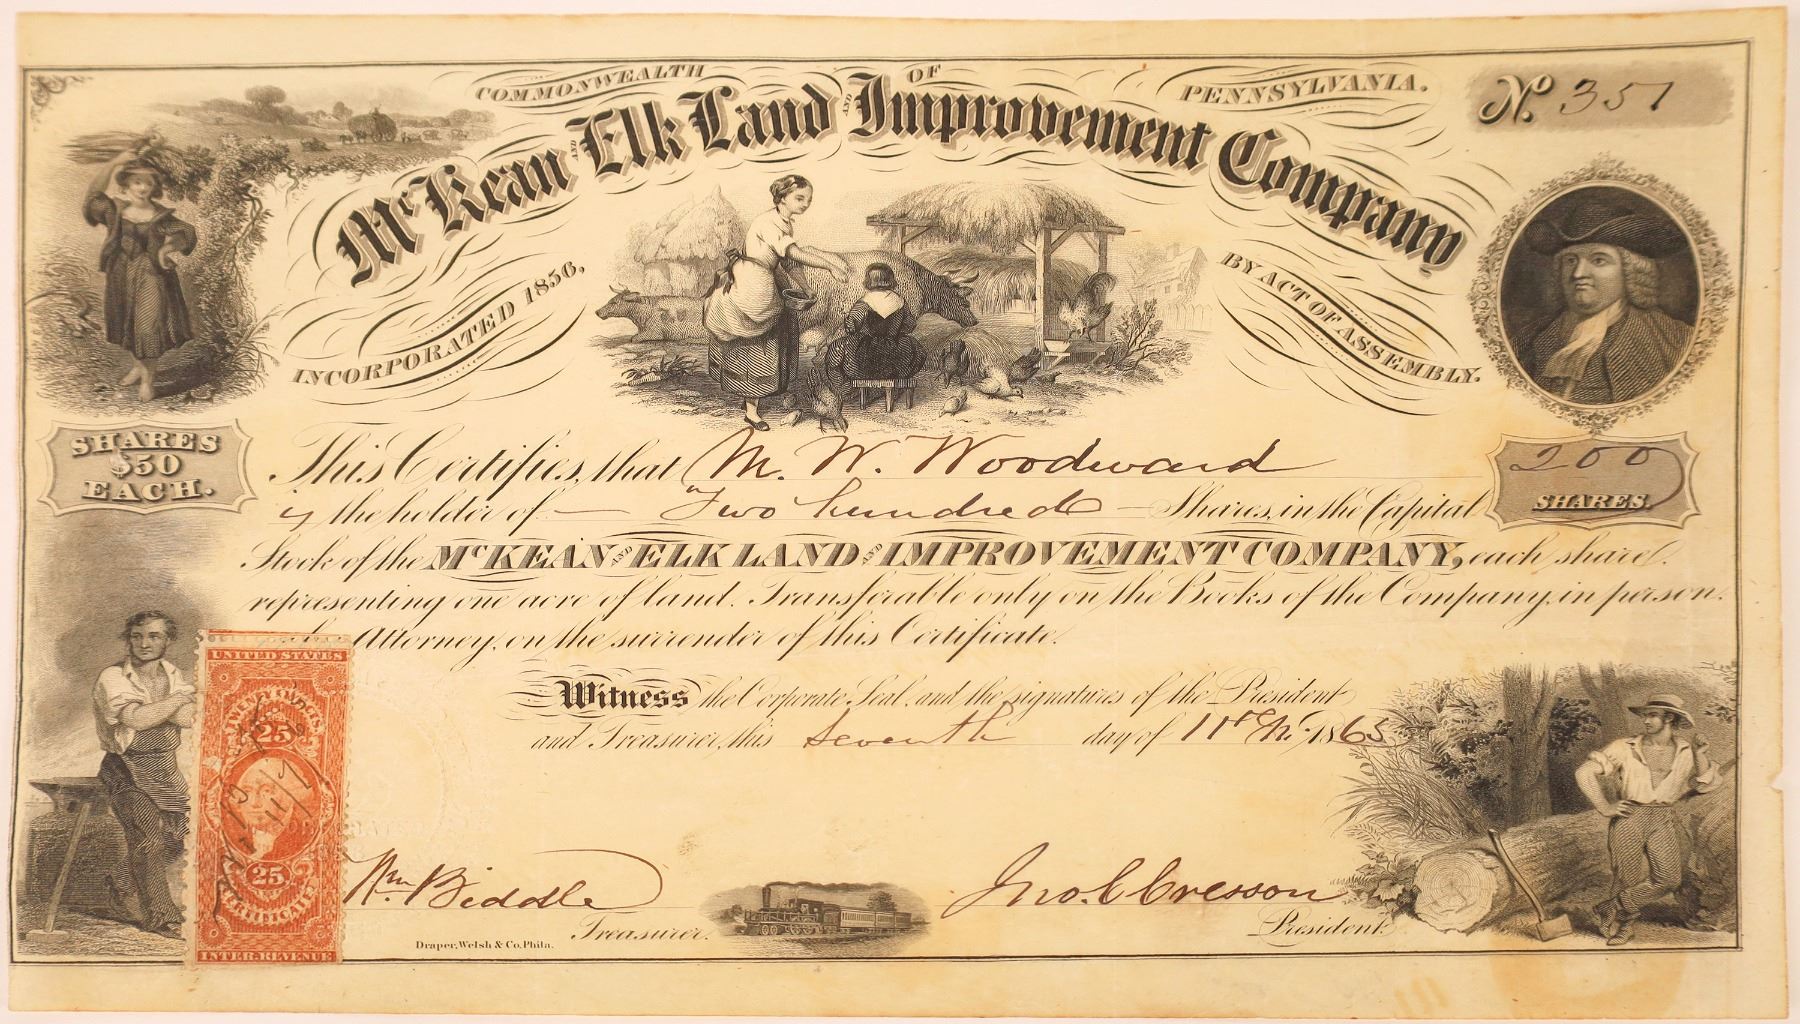 COMMONWEALTH OF PENNSYLVANIA.
No. 351
McKean AND Elk Land AND Improvement Company
INCORPORATED 1856, BY ACT OF ASSEMBLY.
SHARES
$50
EACH.
200
SHARES.
This Certifies, that M. W. Woodward
is the holder of — Two hundred — Shares, in the Capital
Stock of the McKEAN AND ELK LAND AND IMPROVEMENT COMPANY, each share
representing one acre of land. Transferable only on the Books of the Company, in person
Attorney, on the surrender of this Certificate.
Witness the Corporate Seal, and the signatures of the President
and Treasurer, this seventh day of 11th Mo. 1865
UNITED STATES
TWENTY FIVE CTS
25
25
CERTIFICATE
INTER. REVENUE
Wm. Biddle
Treasurer.
Jno. C. Cresson
President.
Draper, Welsh & Co. Phila.